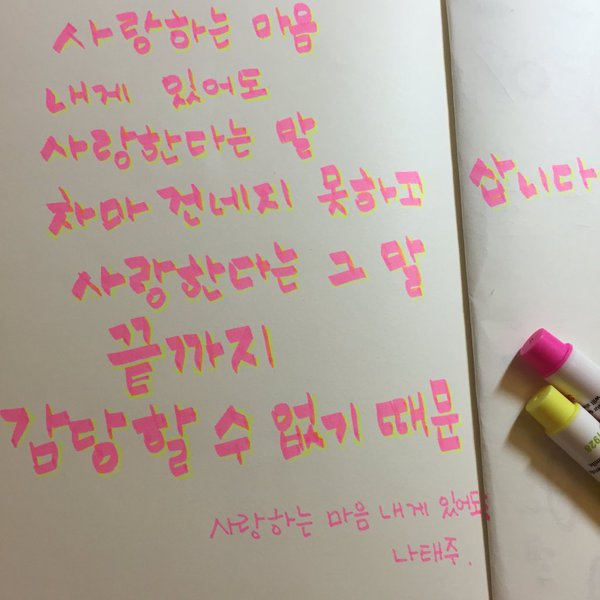 사랑하는 마음
내게 있어도
사랑한다는 말
차마 건네지 못하고 삽니다
사랑한다는 그 말
끝까지
감당할 수 없기 때문
사랑하는 마음 내게 있어도
나태주.